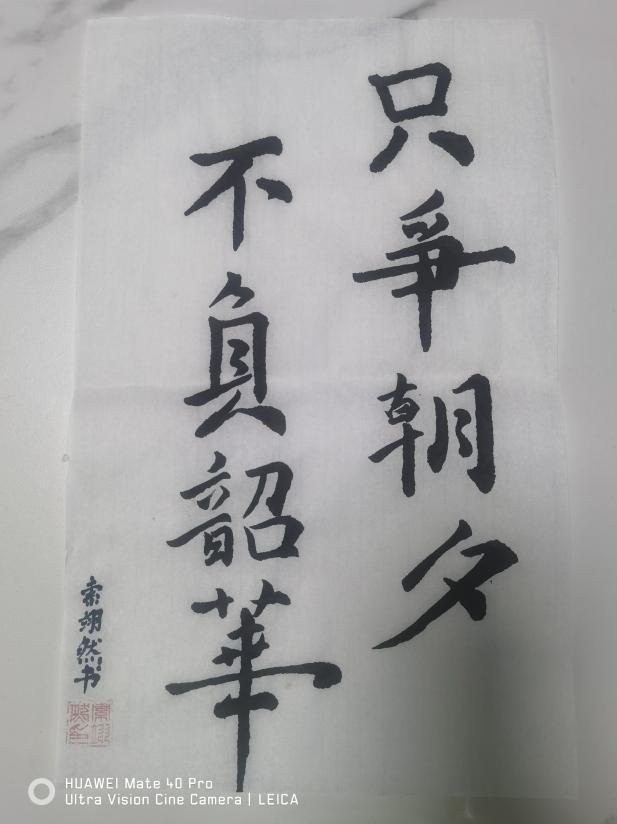 只爭朝夕
不負韶華
索翊然书
HUAWEI Mate 40 Pro
Ultra Vision Cine Camera | LEICA